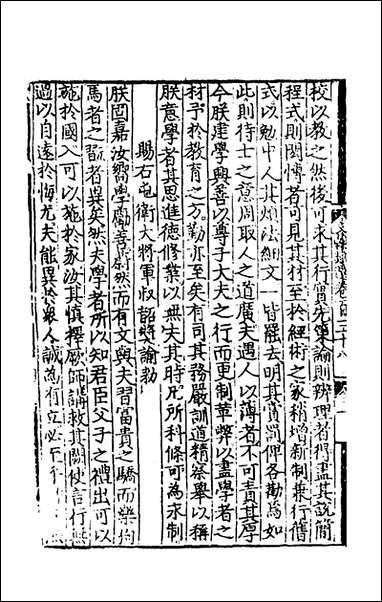 校以教之然後可求其行實先策論則辨理者得盡其說簡
程式則閎博者可見其材至於經術之家稍增新制兼行舊
式以勉中人其煩法細文一皆罷去明其賞罰俾各勸焉如
此則待士之意周取人之道廣夫遇人以薄者不可責其厚
今朕建學興善以尊子大夫之行而更制革弊以盡學者之
材予於教育之方勤亦至矣有司其務嚴訓道精察舉以稱
朕意學者其思進德修業以無失其時凡所科條可為永制
賜右屯衛大將軍叔韶獎諭勑
朕固嘉汝嚮學勵善蔚然而有文與夫習富貴之驕而樂狗
馬者之翫者異矣然夫學者所以知君臣父子之禮出可以
施於國入可以施於家汝其慎擇厥師講救其闕使言行無
過以自遠於悔尤夫能異於衆人誠為有立必至于